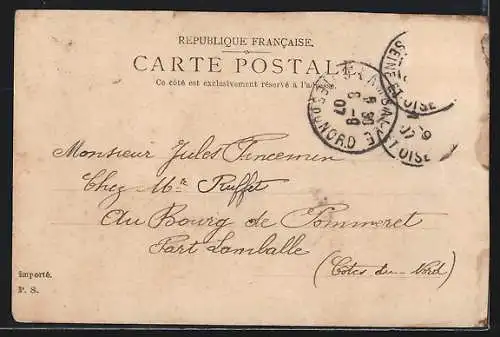 REPUBLIQUE FRANÇAISE.
CARTE POSTALE
Ce côté est exclusivement réservé à l'adresse.
SEINE ET OISE
COTES DU NORD
Monsieur Jules
Chez Mr Ruffet
Au Bourg de Pommeret
Part Lamballe
(Cotes du Nord)
Importé.
P. S.